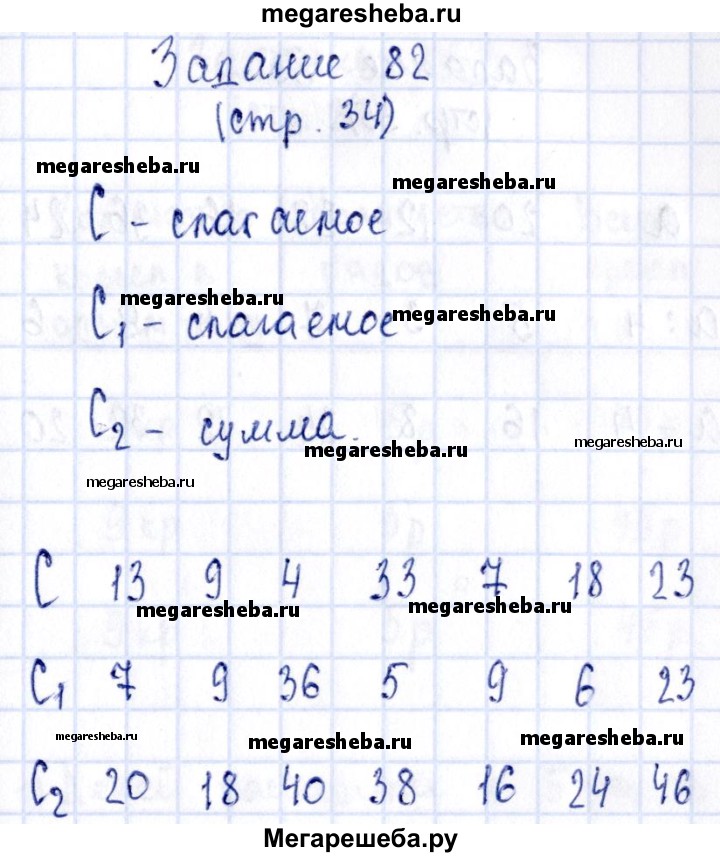 megaresheba.ru
Задание 82
(стр. 34)
megaresheba.ru
megaresheba.ru
С - слагаемое
megaresheba.ru
megaresheba.ru
С1 - слагаемое
С2 - сумма.
megaresheba.ru
megaresheba.ru
megaresheba.ru
С 13 9 4 33 7 18 23
megaresheba.ru
megaresheba.ru
С1 7 9 36 5 9 6 23
megaresheba.ru
megaresheba.ru
megaresheba.ru
С2 20 18 40 38 16 24 46
Мегарешеба.ру